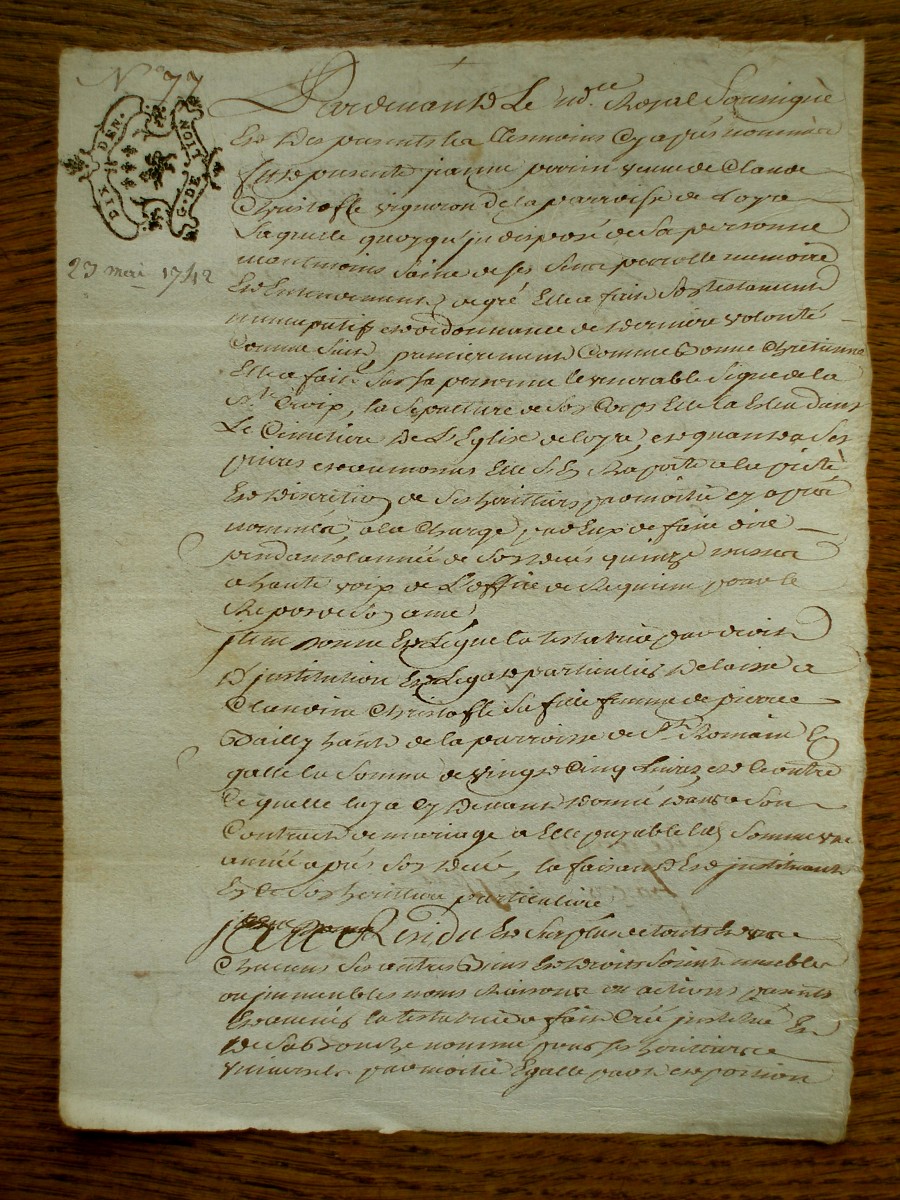 N° 77
DIX DEN.
G. DE NOIT
23 mars 1742
Pardevant Le no.re Royal Soussigné
Et des presents les tesmoins cy apres nommés
fut presente jeanne perrin veuve de Claude
Christofle vigneron de la parroisse de Loyre
Laquelle quoy qu'jndisposé de Sa personne
neantmoins Saine de ses Sens parolle memoire
Et Entendement, de gré Elle a fait Son testament
nuncupatif et ordonnance de derniere volonté
Comme Suit, premierement Comme bonne Chretienne
Elle a fait Sur Sa personne le venerable Signe de la
Ste Croix, la Sepulture de Son Corps Elle la Esleu dans
Le Cimetiere De L'Eglise de loyre, et quant a Ses
prieres et aumones Elle S'En Raporte a la pieté
Et discretion de Ses heritiers par moitié cy apres
nommés, a la Charge par Eux de faire dire
pendant l'année de Son deces quinze messes
a haute voix de L'office de Requiem pour le
Repos de Son ame,
jtem donne Et Legue la testatrice par droit
D'jnstitution Et Legat particulier Delaisse a
Claudine Christofle Sa fille femme de pierre
Dailly habt. de la parroisse de St. Romain
la Somme de vingt Cinq Livres, et outre
Ce quelle luy a cy Devant donné dans Son
Contract de mariage a Elle payable lad. Somme une
année après Son deces, la faisant Et jnstituant
En Ce Son heritiere particuliere
Et au Residu Et Surplus de touts Et un
Chacuns Ses autres Biens Et droits Soient meubles
ou jmmeubles noms Raisons ou actions presents
Et avenir la testatrice a fait Créé jnstitué Et
De Sa Bouche nommé pour Ses heritiers
Universels par moitié Egalle part et portion